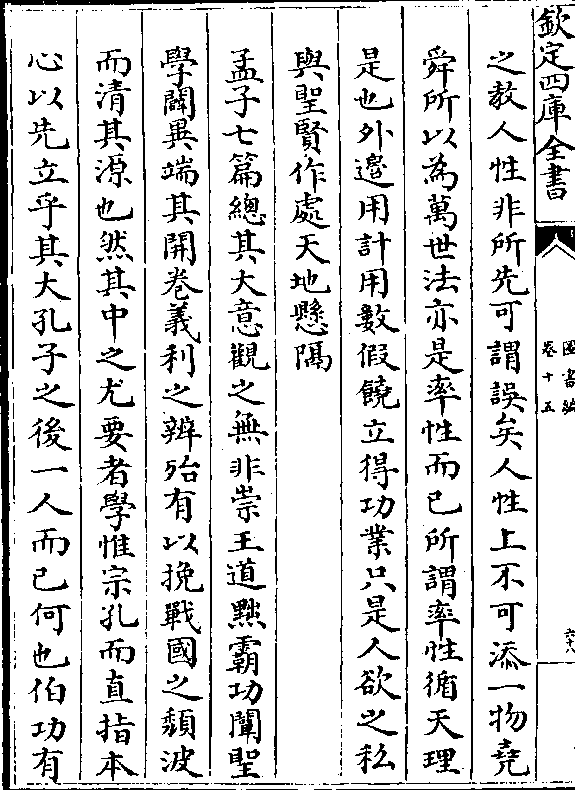 欽定四庫全書
圖書編
卷十五
六十八
之教人性非所先可謂誤矣人性上不可添一物堯
舜所以為萬世法亦是率性而已所謂率性循天理
是也外邉用計用數假饒立得功業只是人欲之私
與聖賢作處天地懸隔
孟子七篇總其大意觀之無非崇王道黜霸功闡聖
學闢異端其開卷義利之辨殆有以挽戰國之頽波
而清其源也然其中之尤要者學惟宗孔而直指本
心以先立乎其大孔子之後一人而已何也伯功有